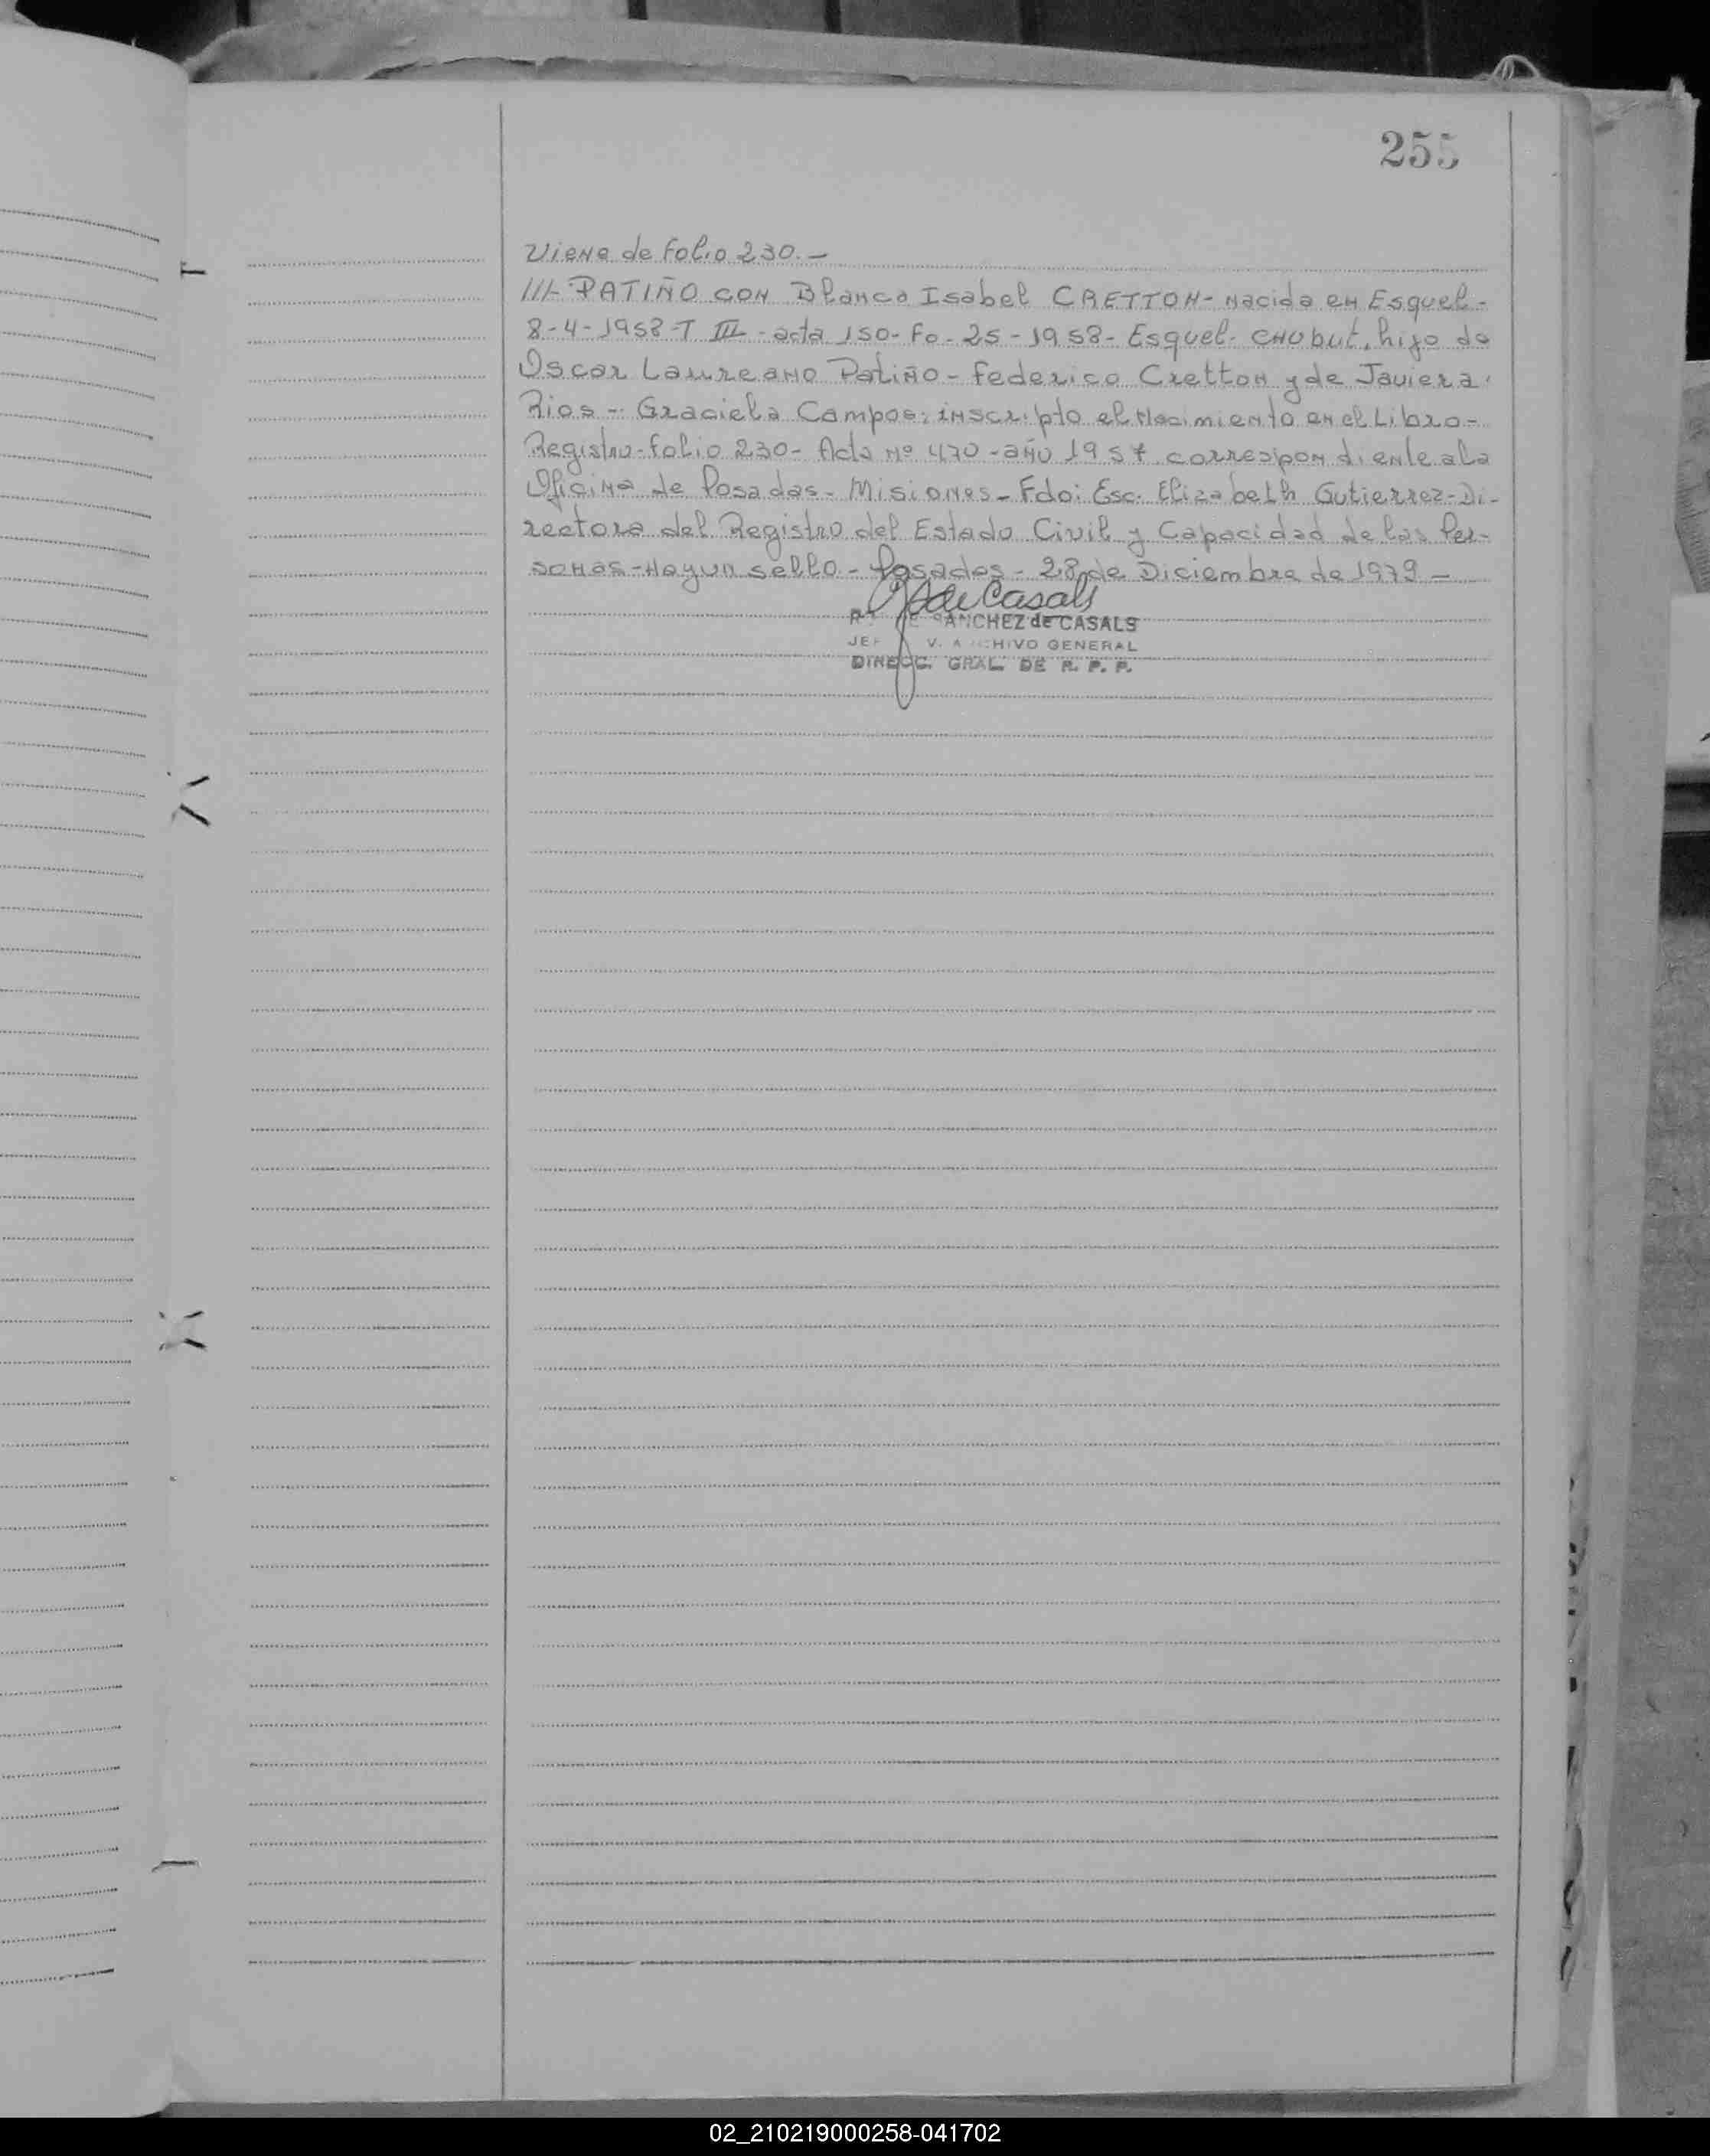 255
Viene de Folio 230.-
///- PATIÑO CON Blanca Isabel CRETTON- Nacida en Esquel-
8-4-1958-T III- acta 150- Fo- 25-1958- Esquel- CHUbut, hijo de
Oscar Laureano Patiño- Federico Cretton y de Javiera
Rios - Graciela Campos: inscripto el Nacimiento en el Libro-
Registro-Folio 230- Acta Nº 470-año 1957 correspondiente a la
Oficina de Posadas- Misiones- Fdo: Esc. Elizabeth Gutierrez-Di-
rectora del Registro del Estado Civil y Capacidad de las Per-
sonas-Hay un sello- Posadas- 28 de Diciembre de 1979-
de Casals
SANCHEZ de CASALS
ARCHIVO GENERAL
DIRECC. GRAL. DE R. P. P.
02_210219000258-041702